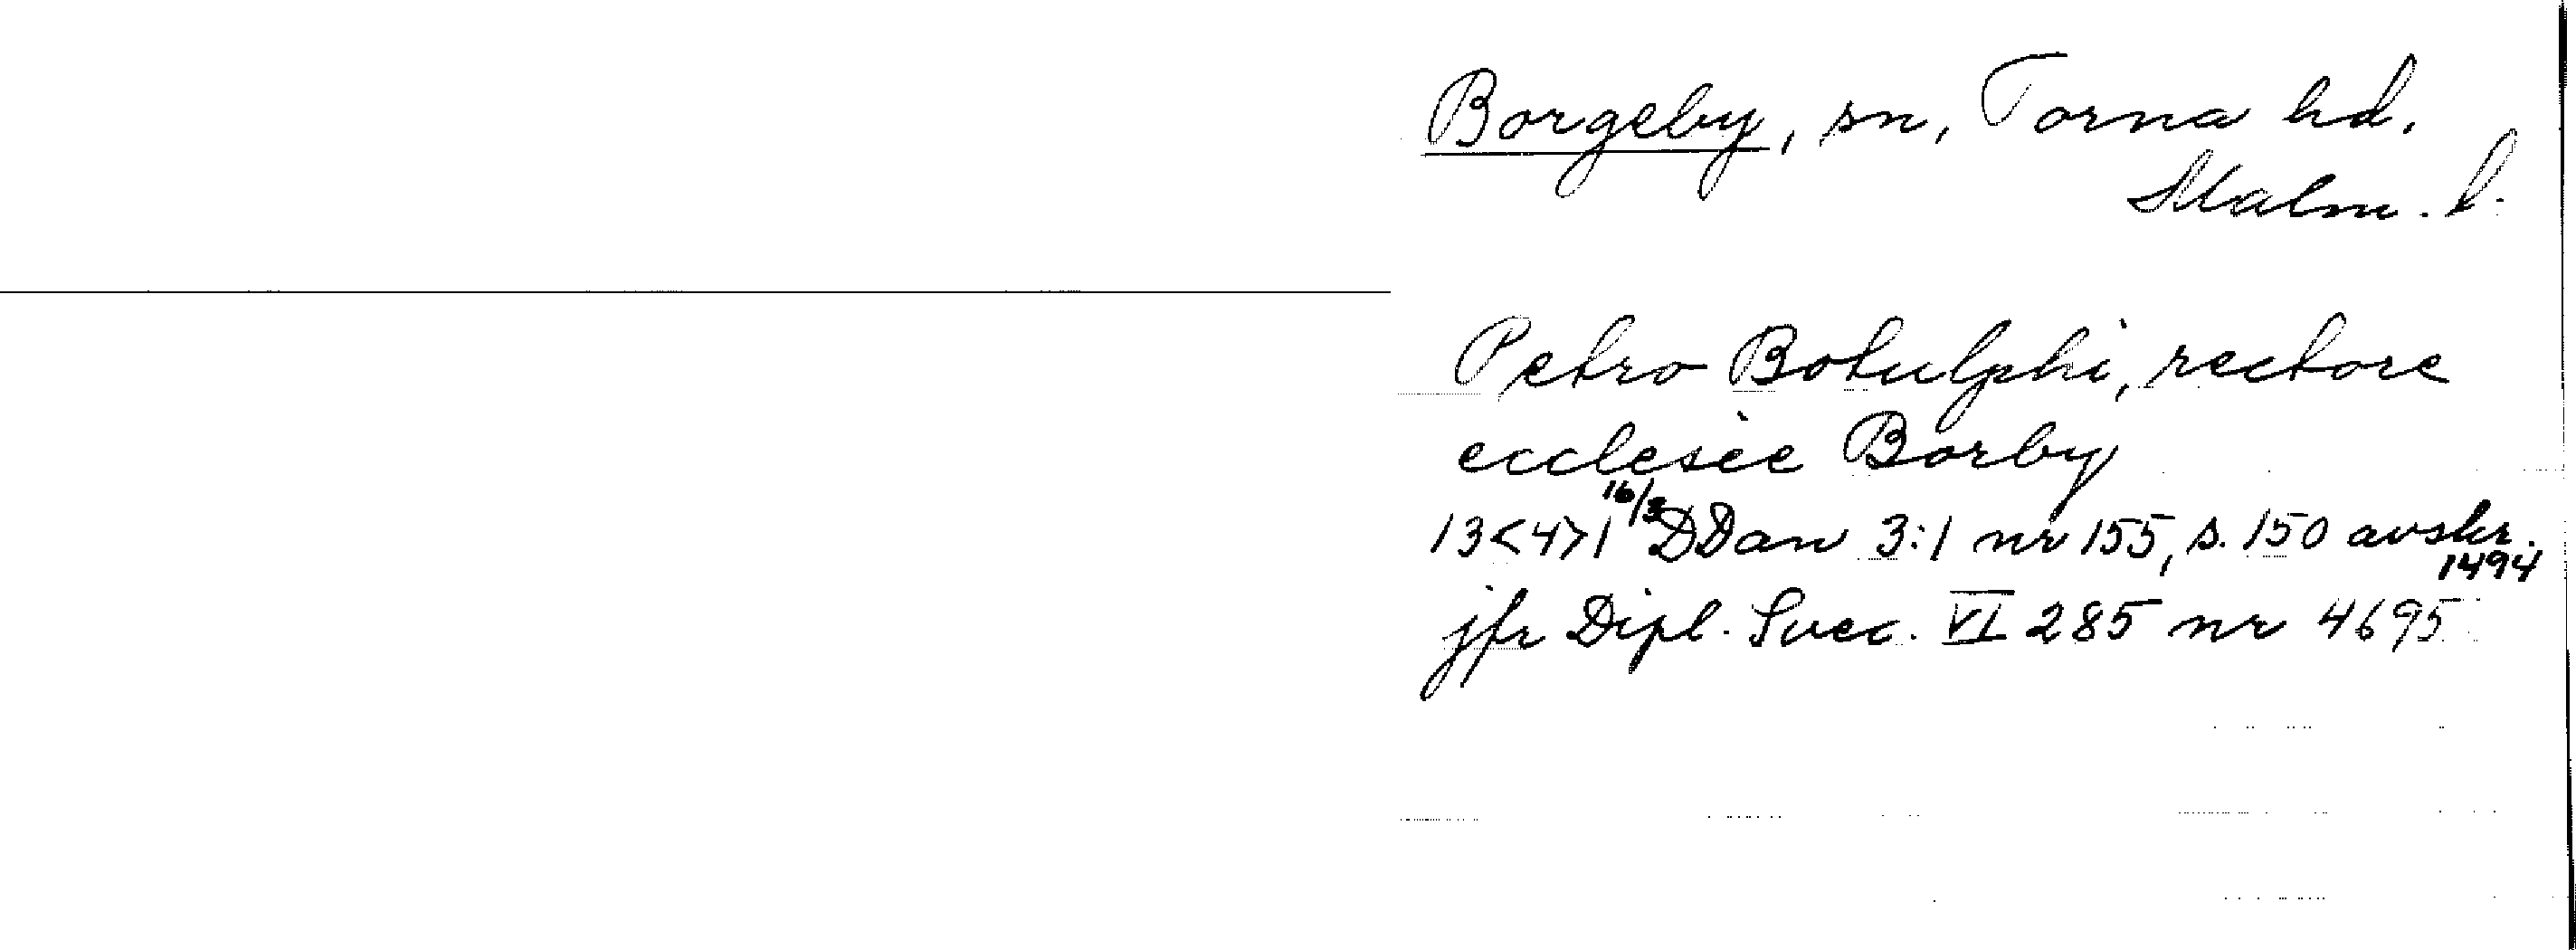 Borgeby, sn, Torna hd.
Malm. l.
Petro Botulphi, rectore
ecclesie Borby
13<4>1 16/3 DDan 3:1 nr 155, s. 150 avskr.
1494
jfr Dipl. Svec. VI 285 nr 4695